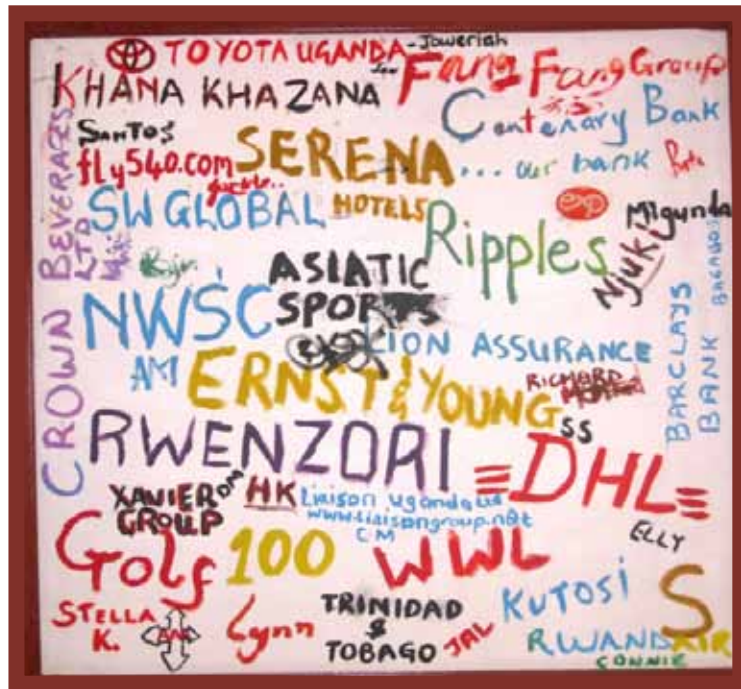 TOYOTA UGANDA
-Joweriah
KHANA KHAZANA
Fang Fang Group
Centenary Bank
... our bank
SANTOS
fly540.com
SERENA
HOTELS
SW GLOBAL
CROWN BEVERAGES LTD
Ripples
Milgunda
Njuki
ASIATIC
SPORTS
NWSC
LION ASSURANCE
BARCLAYS
BANK
AM
ERNST & YOUNG
RICHARD
SS
RWENZORI
DHL
XAVIER
GROUP
DM
HK
Liaison uganda
www.liaisongroup.net
CM
ELLY
Golf
100
WWL
KUTOSI
S
STELLA
K.
Lynn
TRINIDAD
&
TOBAGO
JAL
RWANDAIR
CONNIE